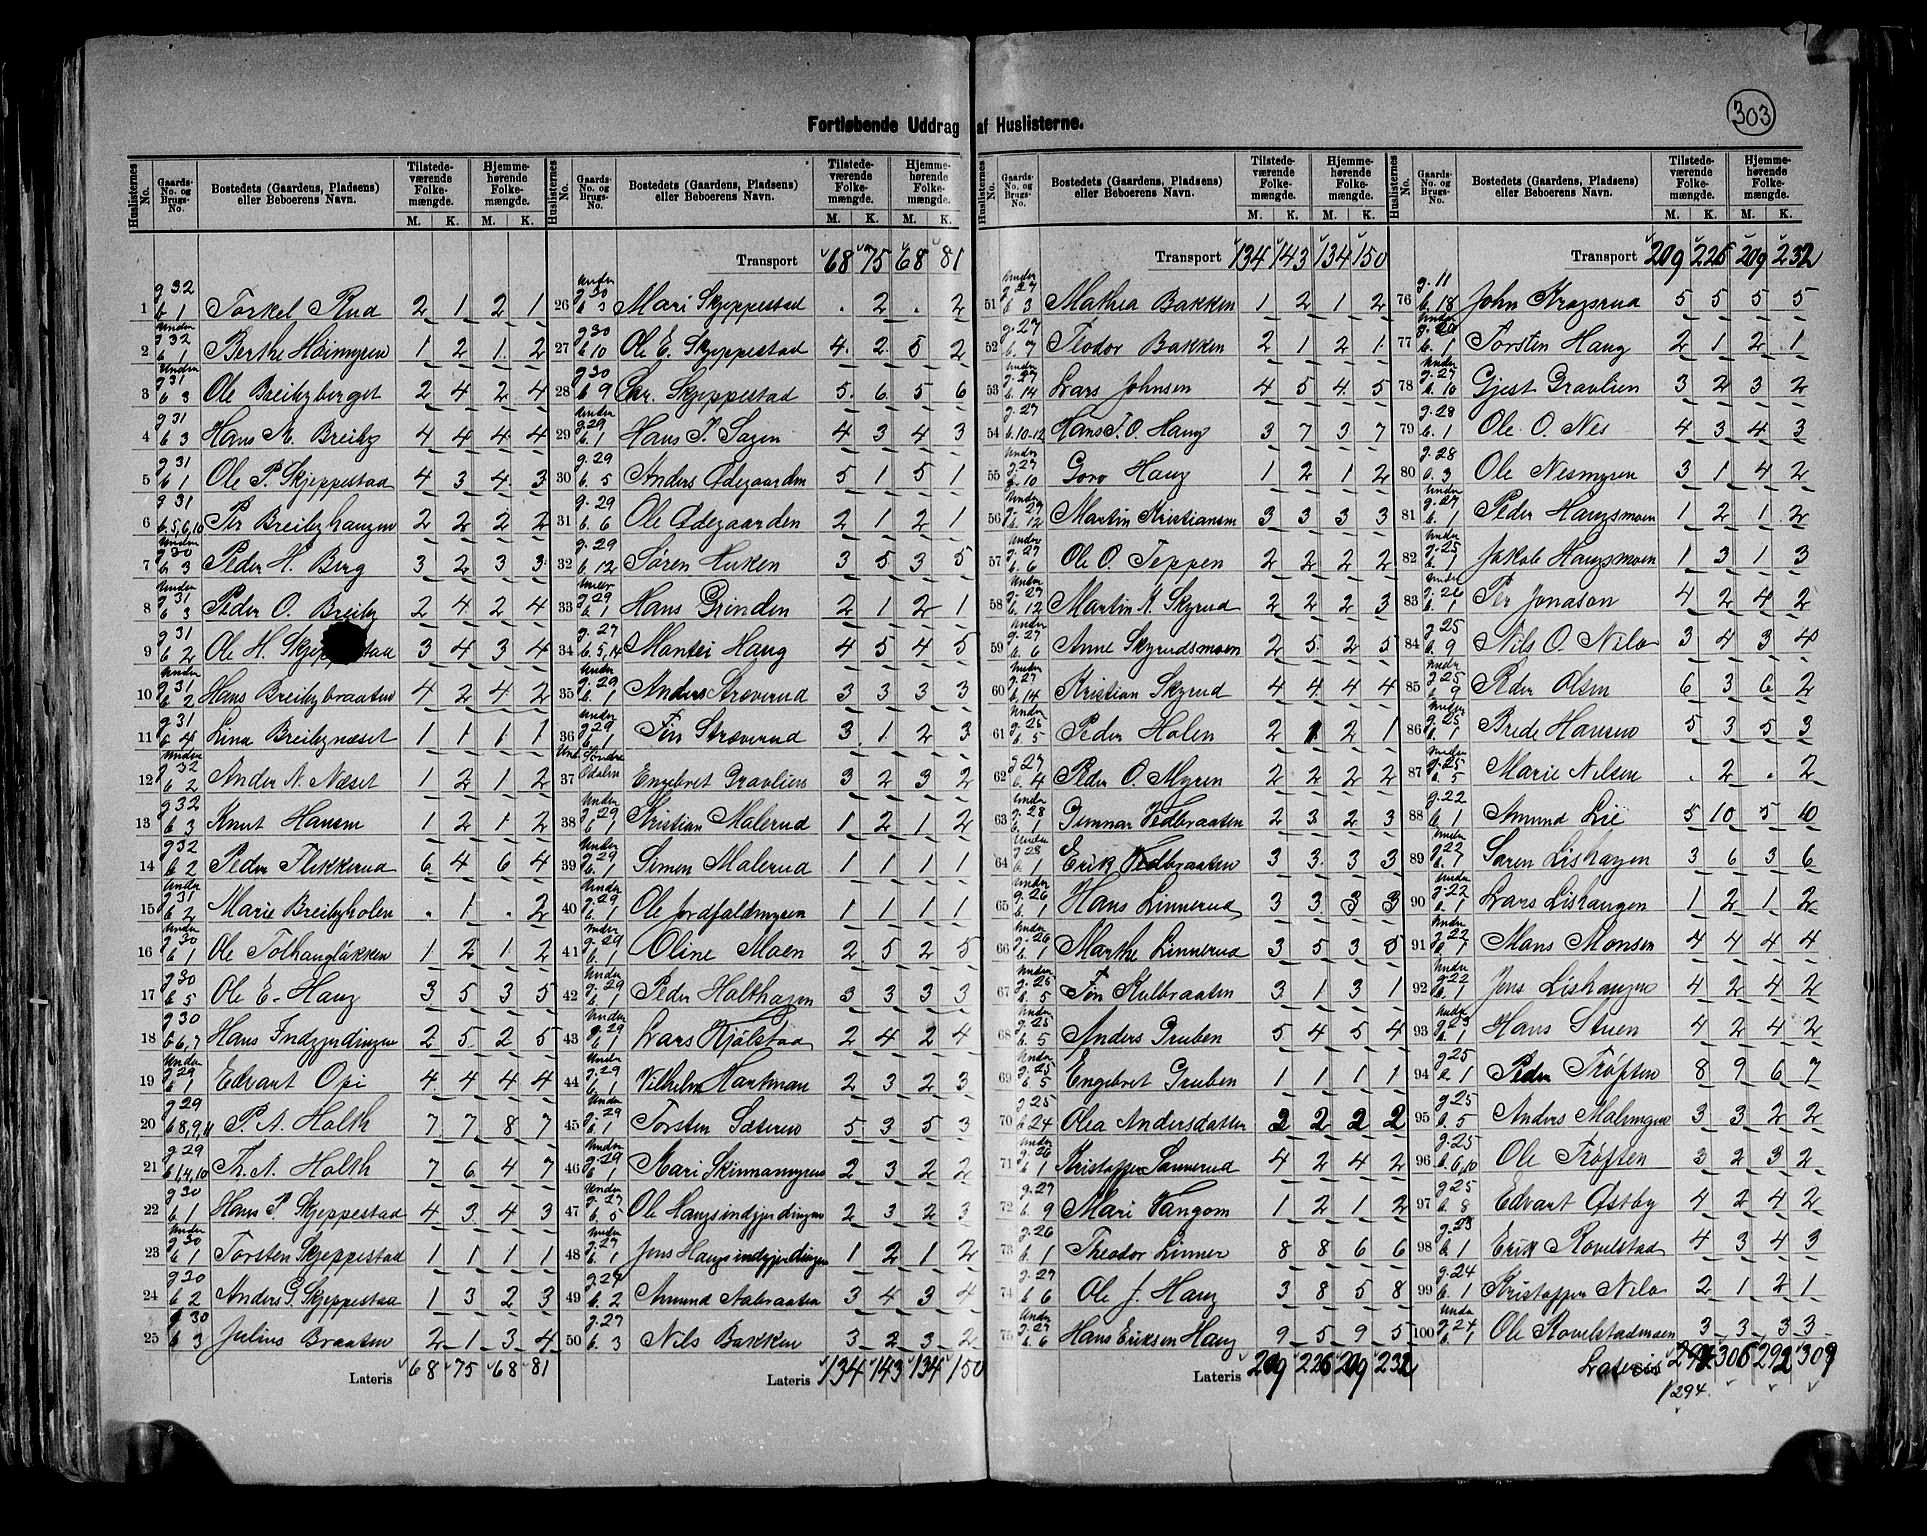 303
Fortløbende Uddrag af Huslisterne.
Huslisternes No. | Gaards-No. og Brugs-No. | Bostedets (Gaardens, Pladsens) eller Beboerens Navn. | Tilstedeværende Folkemængde. M. K. | Hjemmehørende Folkemængde. M. K.
1 g 32 b 1 Torkel Rud 2 1 2 1
2 Under g 32 b 1 Berthe Høimyren 1 2 1 2
3 Under g 31 b 3 Ole Breibyberget 2 4 2 4
4 g 31 b 3 Hans A. Breiby 4 4 4 4
5 g 31 b 1 Ole P. Skjeppestad 4 3 4 3
6 g 31 b. 5, 6, 10 Per Breibyhaugen 2 2 2 2
7 Under g 30 b 3 Peder H. Berg 3 2 3 3
8 Under g 31 b 3 Peder O. Breiby 2 4 2 4
9 g 31 b 2 Ole H. Skjeppestad 3 4 3 4
10 Under g 31 b 2 Hans Breibybraaten 4 2 4 2
11 g 31 b 4 Lina Breibynæset 1 1 1 1
12 Under g 32 b 2 Ander N. Næset 1 2 1 2
13 g 32 b 3 Knut Hansen 1 2 1 2
14 g 32 b 2 Peder Flikkerud 6 4 6 4
15 Under g 31 b 2 Marie Breibyholen . 1 . 2
16 Under g 30 b 1 Ole Tolhaugbakken 1 2 1 2
17 g 30 b 5 Ole E. Haug 3 5 3 5
18 g 30 b 6,7 Hans Indgjerdingen 2 5 2 5
19 Under g 29 b 1 Edvart Opi 4 4 4 4
20 g 29 b 8, 9, 11 P. A. Holth 7 7 8 7
21 g 29 b 1, 4, 10 Th. A. Holth 7 6 4 7
22 g 30 b 1 Hans P. Skjeppestad 4 3 4 3
23 Under g 30 b 1 Torsten Skjeppestad 1 1 1 1
24 g 30 b 2 Anders G. Skjeppestad 1 3 2 3
25 g 30 b 3 Julius Braaten 2 1 3 4
Lateris 68 75 68 81
Transport 68 75 68 81
26 Under g 30 b 3 Mari Skjeppestad . 2 . 2
27 g 30 b 10 Ole E. Skjeppestad 4 2 5 2
28 g 30 b 9 Chr. Skjeppestad 5 6 5 6
29 Under g. 29 b. 1 Hans P. Sagen 4 3 4 3
30 g. 29 b. 5 Anders Ødegaarden 5 1 5 1
31 g. 29 b. 6 Ole Ødegaarden 2 1 2 1
32 g. 29 b. 12 Søren Huken 3 5 3 5
33 Under g. 29 b. 1 Hans Grinden 2 1 2 1
34 g. 27 b. 5, 14 Mantei Haug 4 5 4 5
35 Under g. 29 b. 1 Anders Stræverud 3 3 3 3
36 Under g. 29 b. 1 Finn Stræverud 3 1 2 3
37 Under Søndre Odalen Engebret Gravlien 3 2 3 2
38 Under g. 29 b. 1 Kristian Malerud 1 2 1 2
39 Under g. 29 b. 1 Simen Malerud 1 1 1 1
40 Under g. 29 b. 1 Ole Jordfaldmyren 1 1 1 1
41 Under g. 29 b. 1 Oline Moen 2 5 2 5
42 Under g. 29 b. 1 Peder Holthagen 3 3 3 3
43 Under g. 29 b. 1 Lars Kjølstad 2 4 2 4
44 Under g. 29 b. 1 Vilhelm Hartman 2 3 2 3
45 Under g. 29 b. 1 Torsten Sæteren 5 3 5 3
46 Under g. 29 b. 1 Mari Skinnamyren 2 3 2 2
47 Under g. 27 b. 5 Ole Haugsindgjerdingen 2 3 2 3
48 Under g. 27 b. 1 Jens Haugsindgjerdingen 1 2 1 2
49 g. 27 b. 2 Amund Aabraaten 3 4 3 4
50 g. 27 b. 3 Nils Bakken 3 2 3 2
Lateris 134 143 134 150
Transport 134 143 134 150
51 Under g. 27 b. 3 Mathea Bakken 1 2 1 2
52 g. 27 b. 7 Teodor Bakken 2 1 2 1
53 Under g. 27 b. 14 Lars Johnsen 4 5 4 5
54 g. 27 b. 10-12 Hans T. O. Haug 3 7 3 7
55 Under g. 27 b. 10 Goro Haug 1 2 1 2
56 Under g. 27 b. 12 Martin Kristiansen 3 3 3 3
57 Under g. 27 b. 6 Ole O. Teppen 2 2 2 2
58 Under g. 27 b. 12 Martin K. Skyrud 2 2 2 3
59 g. 27 b. 6 Anne Skyrudsmoen 2 5 2 5
60 Under g. 27 b. 14 Kristian Skyrud 4 4 4 4
61 Under g. 25 b. 5 Peder Holen 2 1 2 1
62 g. 27 b. 4 Peder O. Myren 2 2 2 2
63 Under g. 28 b. 1 Gunnar Vedbraaten 2 3 2 3
64 Under g. 28 b. 1 Erik Vedbraaten 3 3 3 3
65 Under g. 26 b. 1 Hans Linnerud 3 3 3 3
66 Under g. 26 b. 1 Marthe Linnerud 3 5 3 5
67 Under g. 25 b. 5 Finn Kulbraaten 3 1 3 1
68 Under g. 25 b. 5 Anders Gruben 5 4 5 4
69 Under g. 25 b. 5 Engebret Gruben 1 1 1 1
70 g. 25 b. 24 Olea Andersdatter 2 2 2 2
71 Under g. 26 b. 1 Kristoffer Linnerud 4 2 4 2
72 g. 27 b. 9 Mari Vangom 1 2 1 2
73 g. 26 b. 1 Theodor Linner 8 8 6 6
74 g. 27 b. 6 Ole J. Haug 3 8 5 8
75 Under g. 27 b. 6 Hans Eriksen Haug 9 5 9 5
Lateris 209 226 209 232
Transport 209 226 209 232
76 g. 11 b. 18 John Kragsrud 5 5 5 5
77 Under b. 1 Torsten Haug 2 1 2 1
78 Under g. 27 b. 10 Gjest Gravlien 3 2 3 2
79 g. 28 b. 1 Ole O. Nes 4 3 4 3
80 g. 28 b. 3 Ole Nesmyren 3 1 4 2
81 Under g. 27 b. 1 Peder Haugsmoen 1 2 1 2
82 Under g. 25 b. 1 Jakob Haugsmoen 1 3 1 3
83 Under g. 26 b. 1 Per Jonason 4 2 4 2
84 g. 25 b. 9 Nils O. Nilo 3 4 3 4
85 Under g. 25 b. 9 Peder Olsen 6 3 6 2
86 Under g. 25 b. 1 Brede Hansen 5 3 5 3
87 Under g. 25 b. 5 Marie Nilsen . 2 . 2
88 g. 22 b. 1 Amund Lie 5 10 5 10
89 Under g. 22 b. 7 Søren Lishagen 3 6 3 6
90 g. 22 b. 1 Lars Lishaugen 1 2 1 2
91 Under g. 22 b. 7 Mons Monsen 4 4 4 4
92 Under g. 22 b. 1 Jens Lishaugen 4 2 4 2
93 Under g. 23 b. 1 Hans Stuen 4 2 4 2
94 g. 25 b. 1 Peder Trøften 8 9 6 7
95 g. 25 b. 5 Anders Malungen 3 3 2 2
96 g. 25 b. 6, 10 Ole Trøften 3 2 3 2
97 g. 25 b. 8 Edvart Østby 4 2 4 2
98 g. 23 b. 1 Erik Rovelstad 4 3 4 3
99 g. 24 b. 1 Kristoffer Nilo 2 1 2 1
100 Under g. 24 b. 1 Ole Rovelstadmoen 3 3 3 3
Lateris 306 292 309
294.